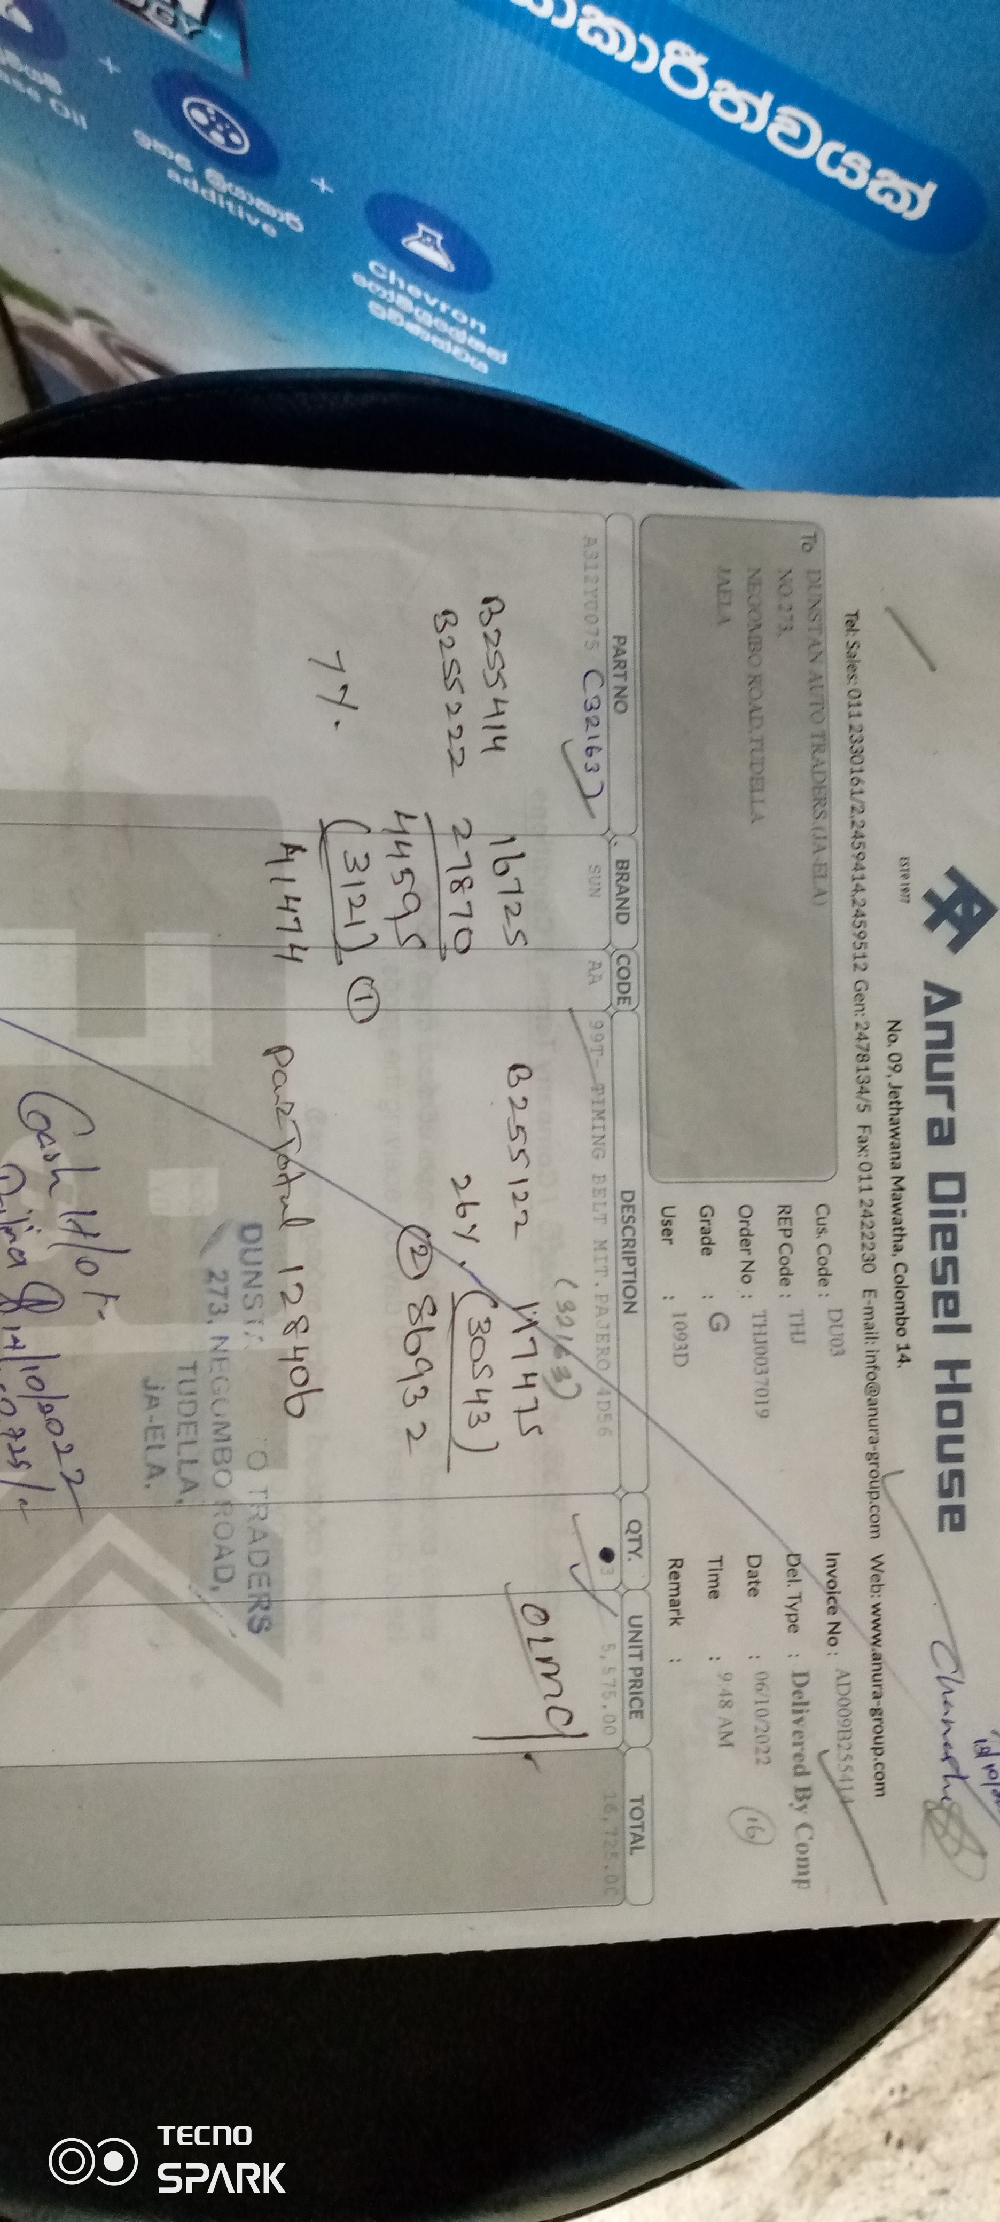 යාකාරීත්වයක්
additive
Chevron
Anura Diesel House
ESTD 1977
No. 09, Jethawana Mawatha, Colombo 14.
Tel: Sales: 011 2330161/2,2459414,2459512 Gen: 2478134/5 Fax: 011 2422230 E-mail: info@anura-group.com Web: www.anura-group.com
To DUNSTAN AUTO TRADERS (JA-ELA)
NO.273,
NEGOMBO ROAD,TUDELLA
JAELA
Cus. Code : DU03
REP Code : THJ
Order No : THJ0037019
Grade : G
User : 1093D
Invoice No : AD009B255414
Del. Type : Delivered By Comp
Date : 06/10/2022
Time : 9:48 AM
Remark :
16
PART NO BRAND CODE DESCRIPTION QTY. UNIT PRICE TOTAL
A312Y0075 (32163) SUN AA 99T- TIMING BELT MIT.PAJERO 4D56 3 5,575.00 16,725.00
(32163)
B255414 16725
B255222 27870
44595
7%. (3121)
41474 ①
B255122 117475
26%. (30543)
② 86932
128406
DUNST O TRADERS
273, NEGOMBO ROAD,
TUDELLA,
JA-ELA.
Cash H/O
14/10/2022
TECNO
SPARK